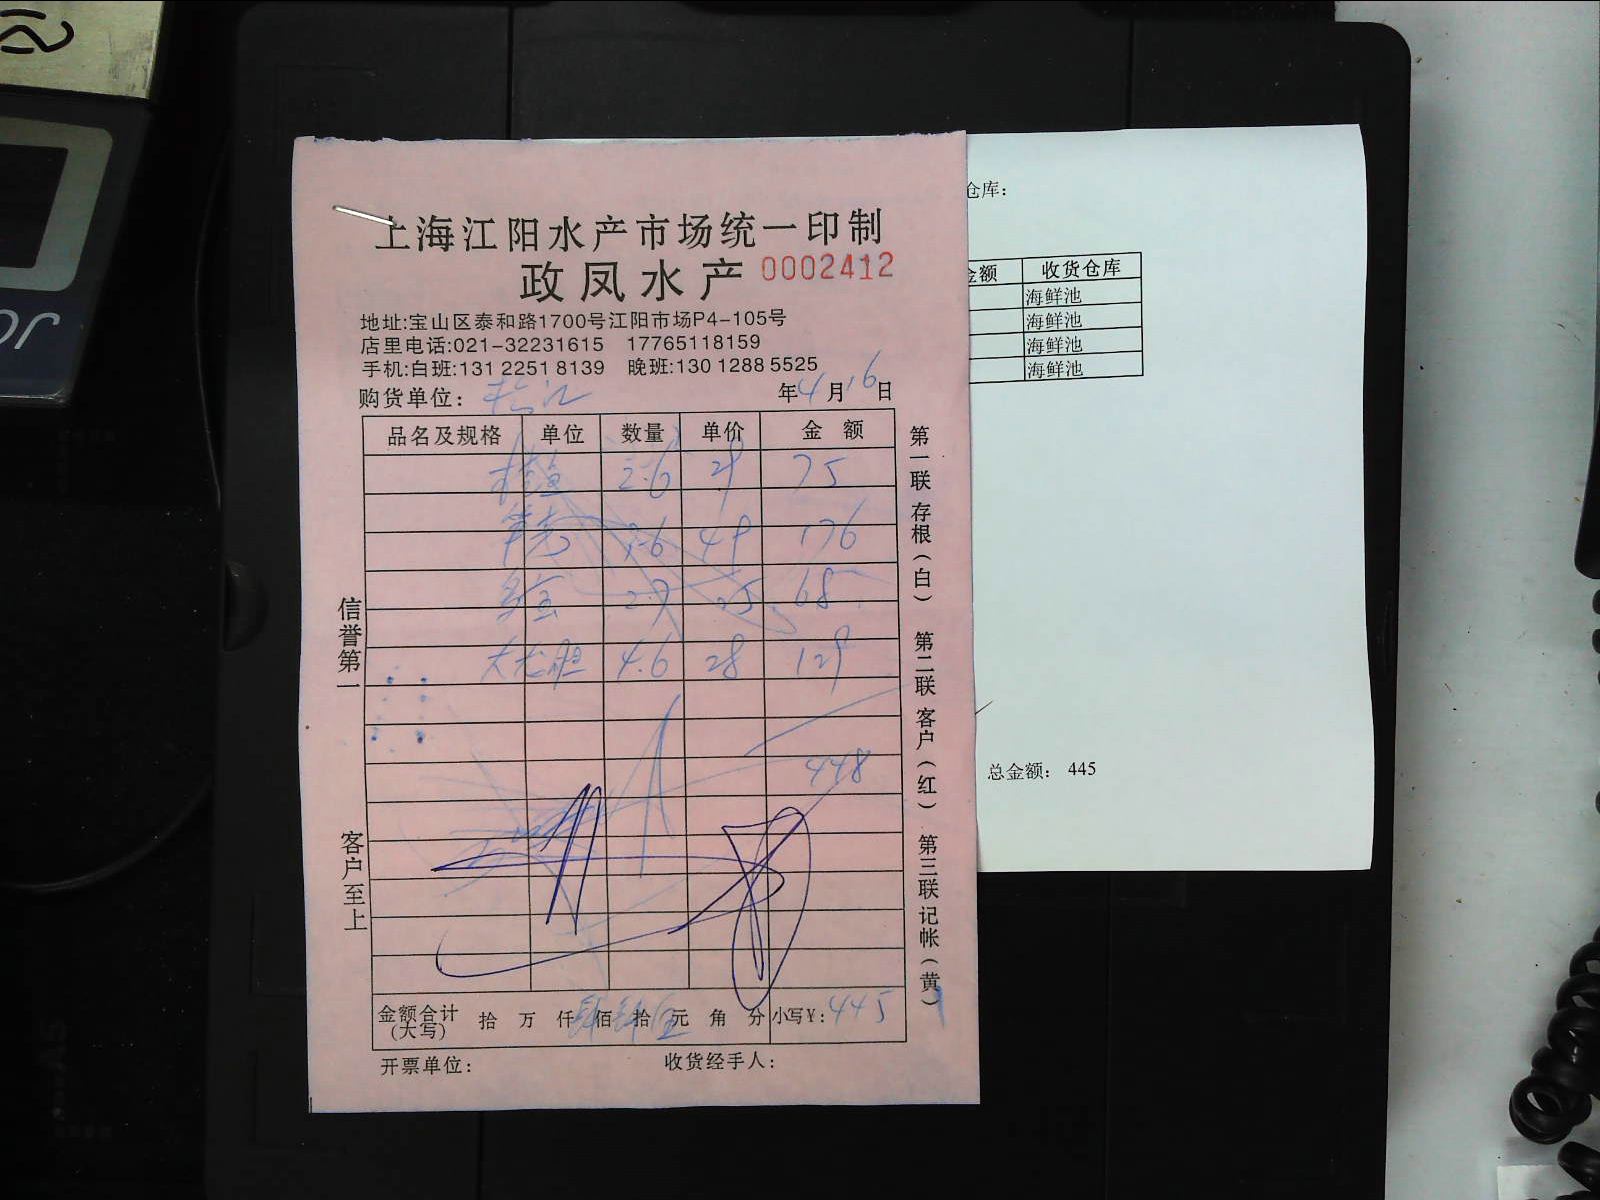 上海江阳水产市场统一印制
政凤水产 0002412
地址:宝山区泰和路1700号江阳市场P4-105号
店里电话:021-32231615 17765118159
手机:白班:131 2251 8139 晚班:130 1288 5525
购货单位: 松江 年4月16日
品名及规格 单位 数量 单价 金额
桂鱼 2.6 29 75
笋壳 3.6 49 176
2.7 25 68
4.6 28 129
448
金额合计(大写) 拾 万 仟 肆佰 肆拾 伍元 角 分 小写¥: 445
开票单位: 收货经手人:
信誉第一
客户至上
第一联 存根(白) 第二联 客户(红) 第三联 记帐(黄)
仓库:
金额 收货仓库
海鲜池
海鲜池
海鲜池
海鲜池
总金额: 445